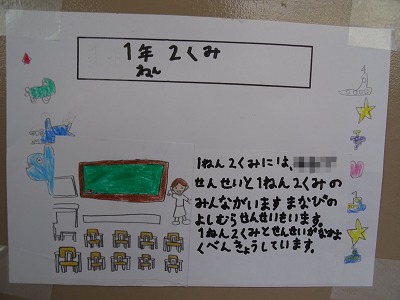 1年2くみ
ねん
1ねん2くみには、
せんせいと1ねん2くみの
みんながいます まなびの
よしむらせんせいもいます。
1ねん2くみとせんせいがなかよ
くべんきょうしています。